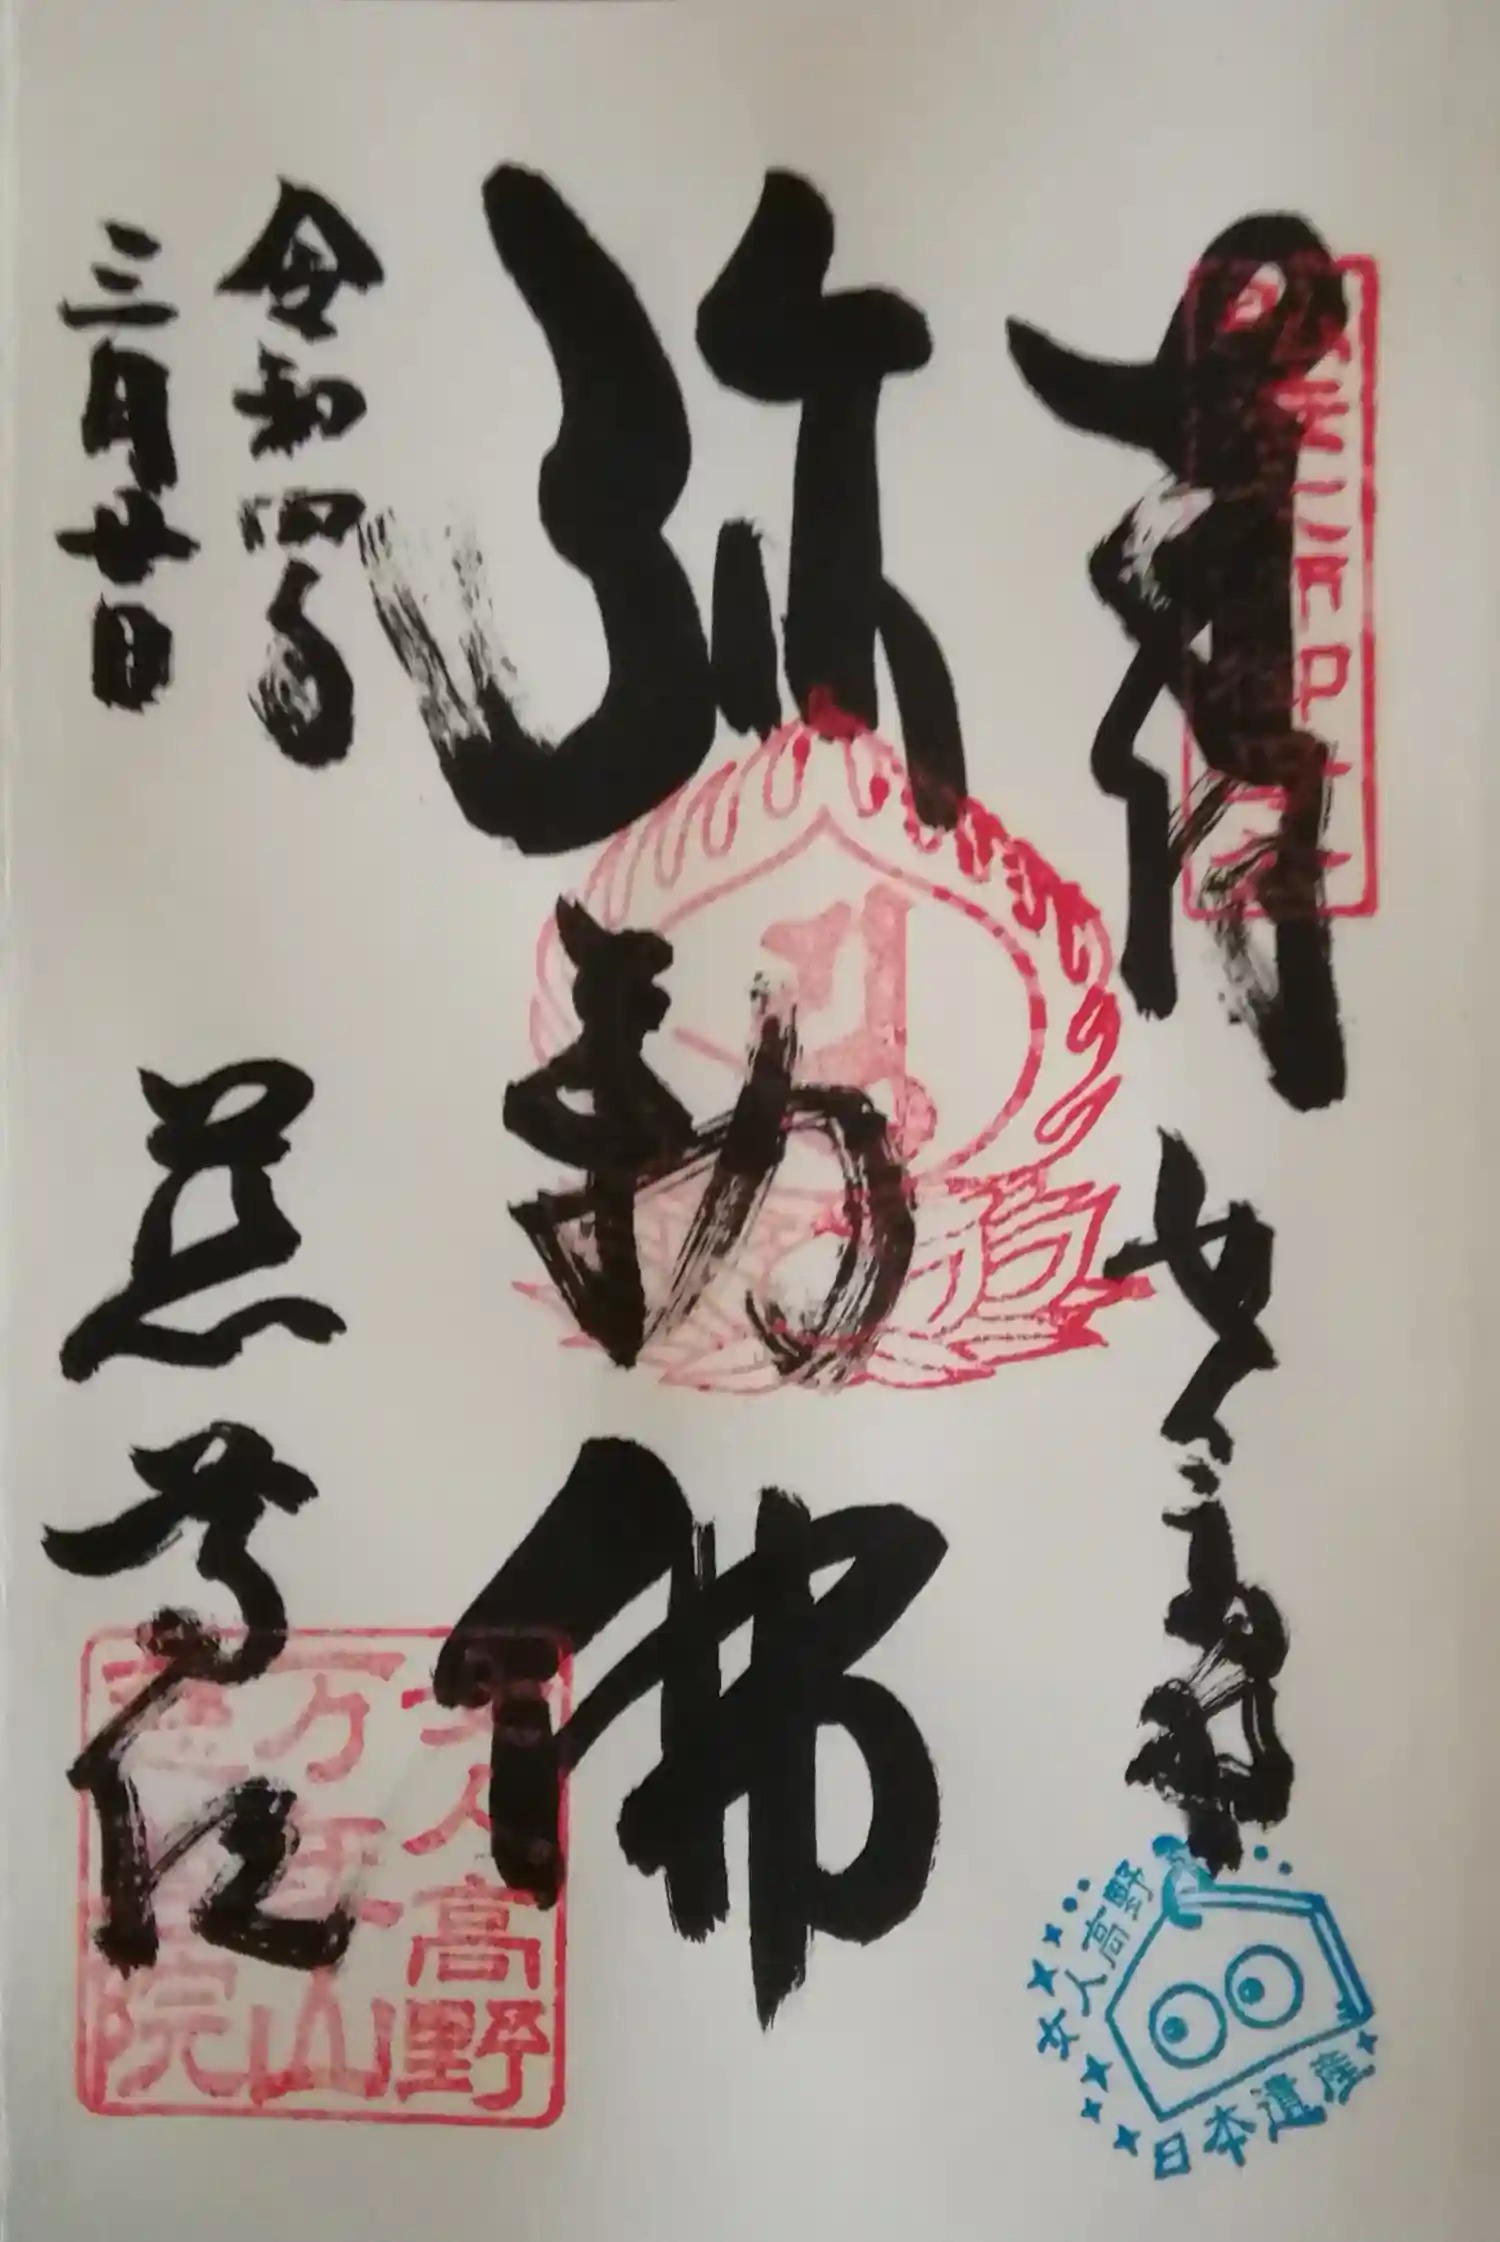 奉拝
女人高野
弥勒佛
令和四年
三月廿日
慈尊院
女人高野
万年山
慈尊院
女人高野
日本遺産